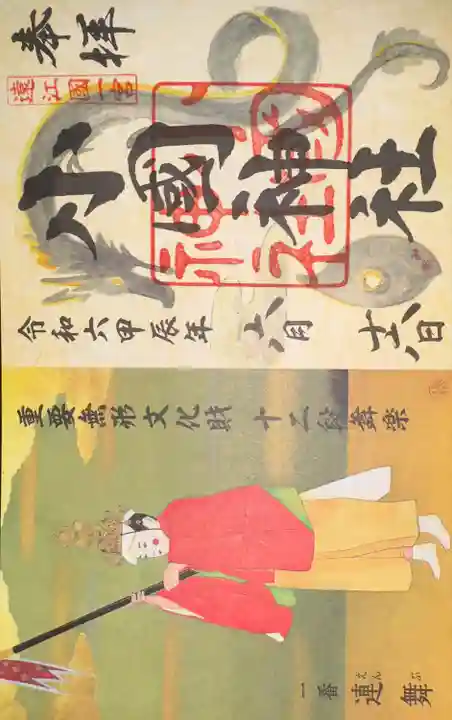 奉拝
遠江國一宮
小國神社
令和六甲辰年 六月 十六日
重要無形文化財 十二段舞楽
一番 連舞
えん ぶ